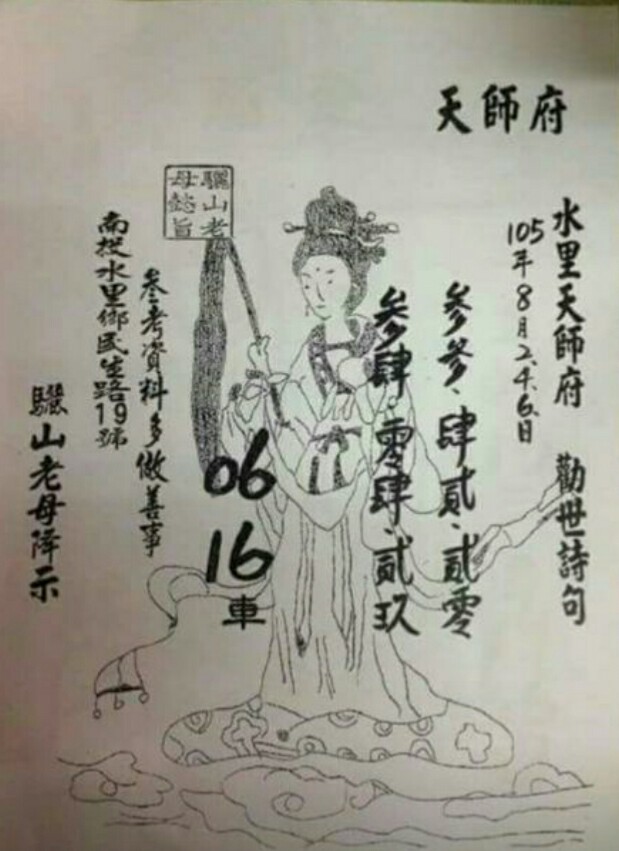 天師府
水里天師府 勸世詩句
105年8月2.4.6.日
參參.肆貳.貳零
參肆.零肆.貳玖
06
16
車
驪山老
母懿旨
參考資料多做善事
南投水里鄉民生路19號
驪山老母降示